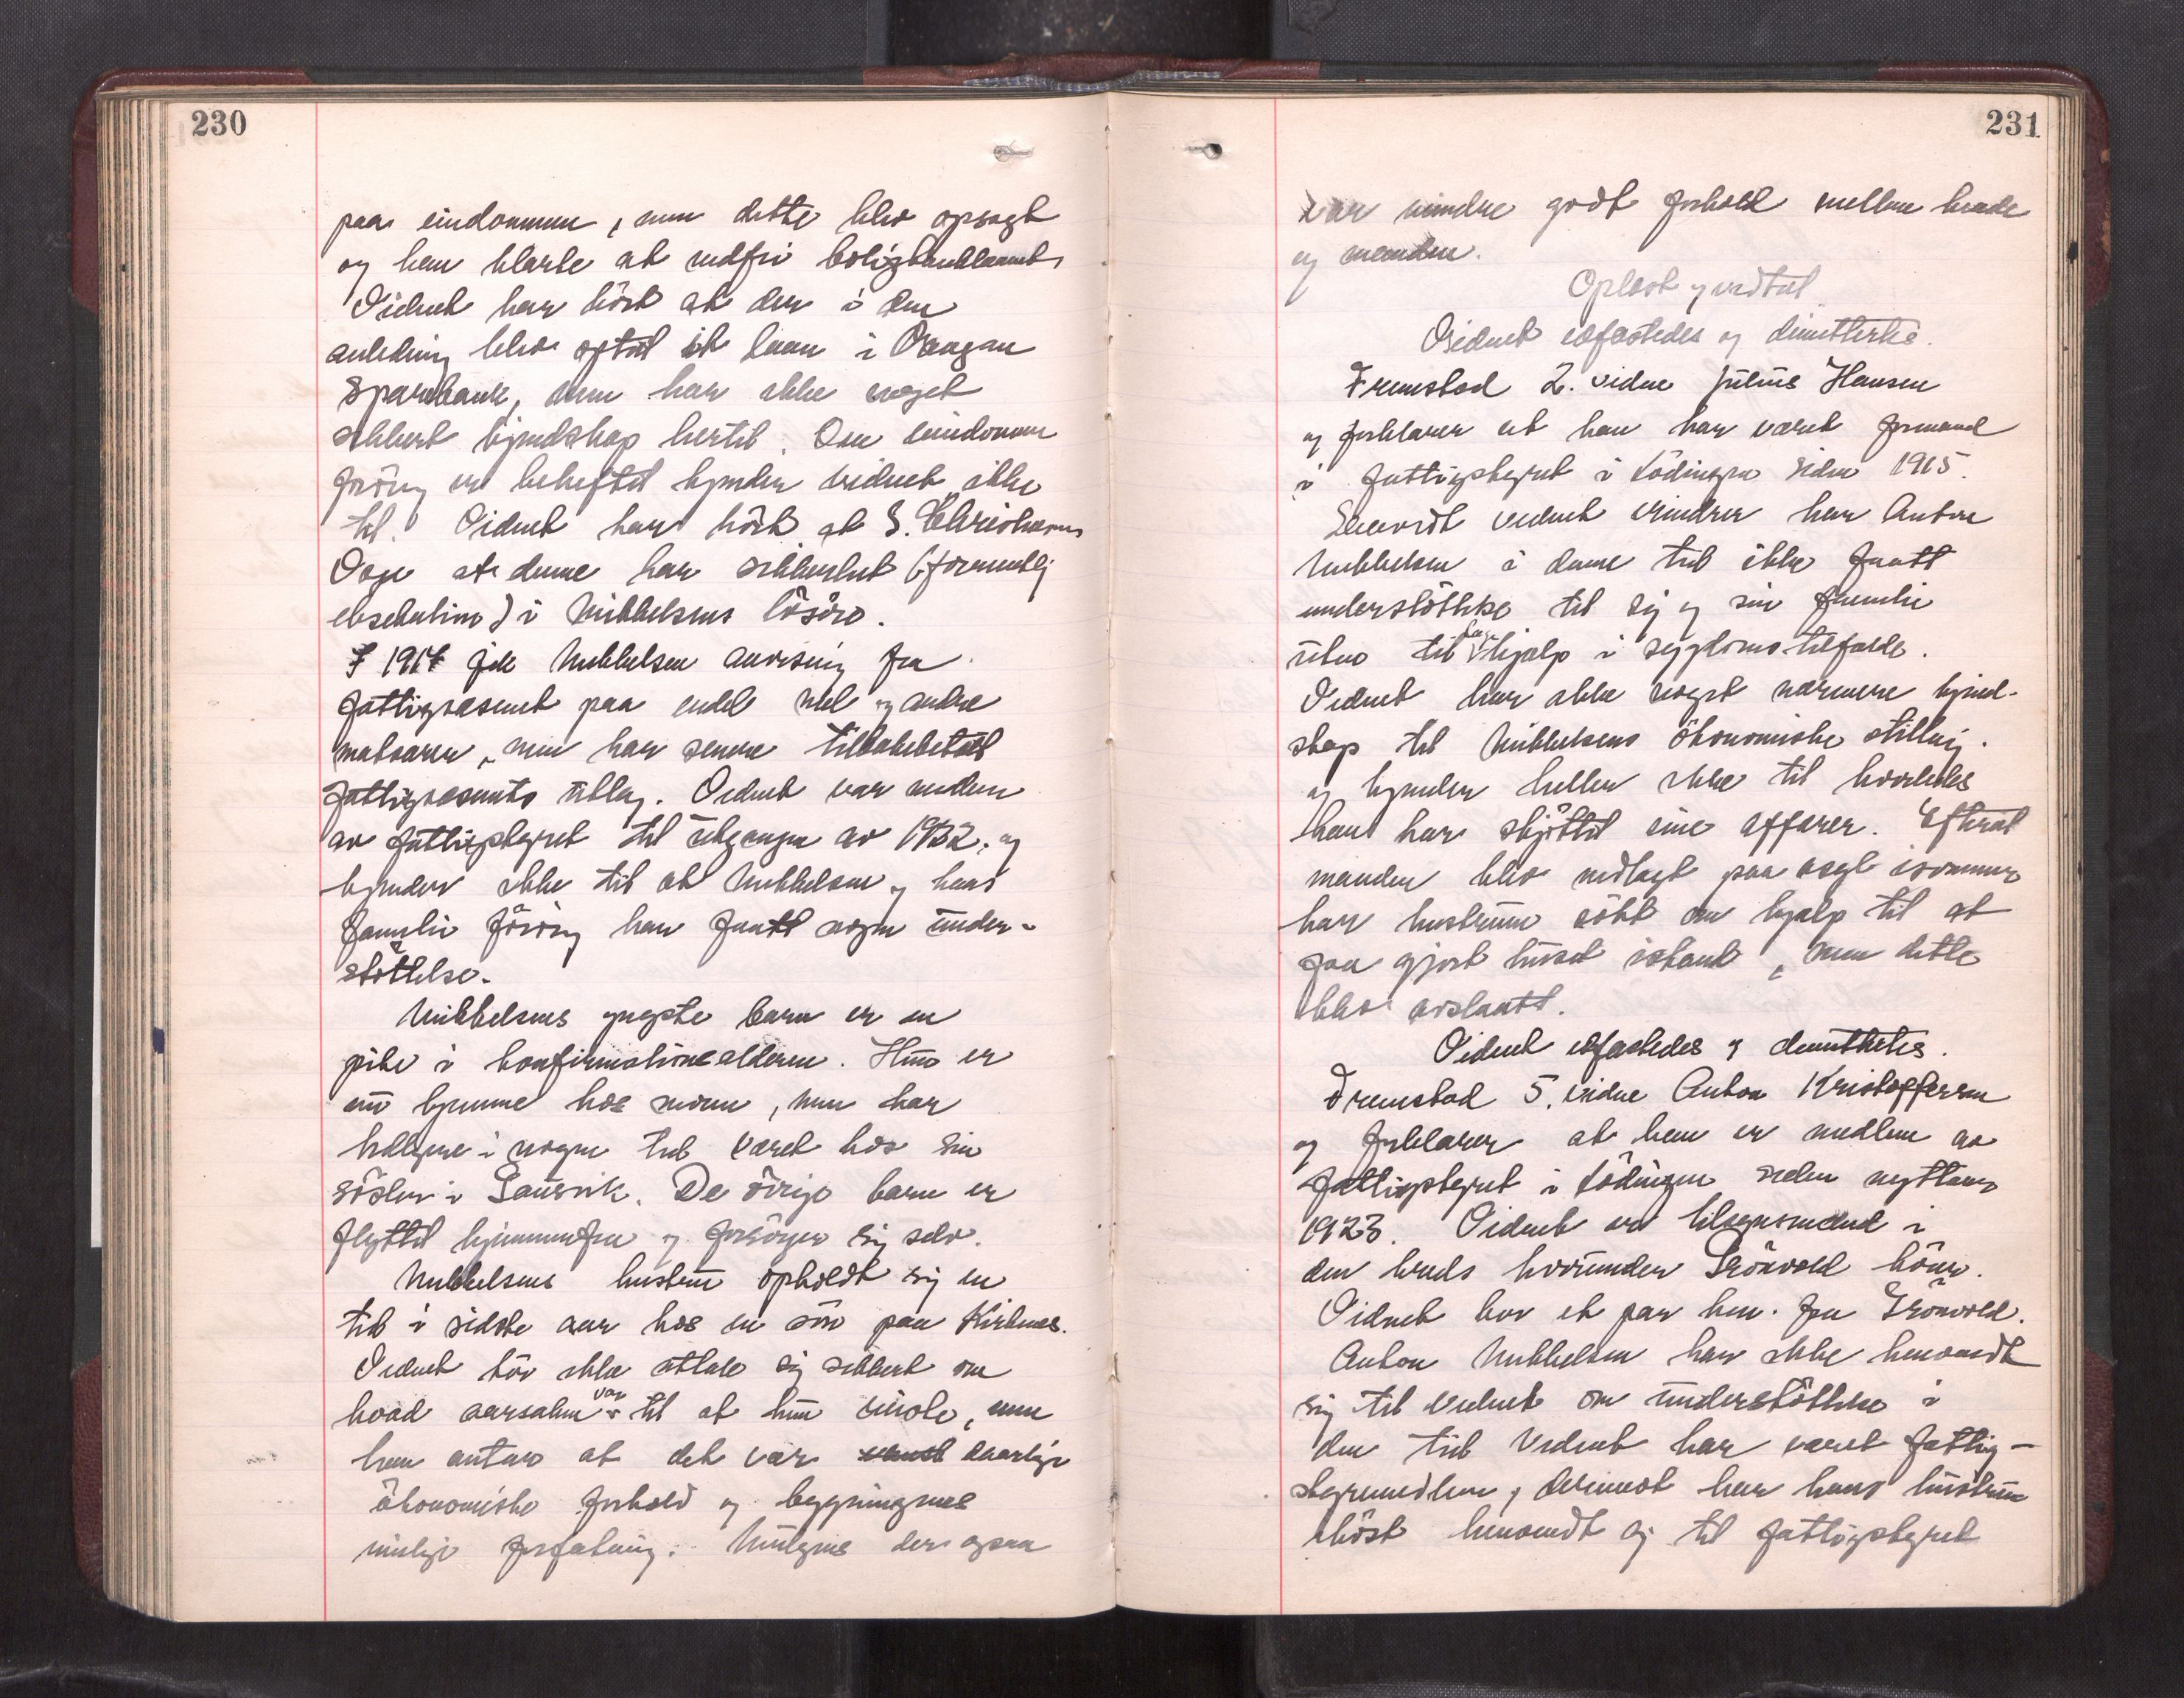 230
paa eiendommen, men dette blev opsagt
og han klarte at indfri boligbanklaanet.
Vidnet har hört at der i den
anledning blev optat et laan i Vaagan
Sparebank, men har ikke noget
sikkert kjendskap hertil. Om eiendommen
forövrig er beheftet kjender vidnet ikke
til. Vidnet har hört at S. Christensens
at denne har sikkerhet (formentlig
eksekution) i Mikkelsens lösöre.
I 1914 fik Mikkelsen anvisning fra
fattigvæsenet paa endel mel og andre
matvarer, men har senere tilbakebetalt
fattigvæsenets utlæg. Vidnet var medlem
av fattigstyret til utgangen av 1922, og
kjender ikke til at Mikkelsen og hans
familie forövrig har faatt nogen under-
støttelse.
Mikkelsens yngste barn er en
pike i konfirmationsalderen. Hun er
nu hjemme hos moren, men har
tidligere i nogen tid været hos sin
söster i Saursvik. De övrige barn er
flyttet hjemmefra og forsörger sig selv.
Mikkelsens hustru opholdt sig en
tid i sidste aar hos en sön paa Kirkenes.
Vidnet tör ikke uttale sig sikkert om
hvad aarsaken var til at hun reiste, men
han antar at det var daarlige
ökonomiske forhold og bygningenes
usle forfatning. Muligens der ogsaa
231
var mindre godt forhold mellem hende
og manden.
Oplæst og vedtat
Vidnet edfæstedes og dimitteres.
Fremstod 2. vidne Julius Hansen
og forklarer at han har været formand
i fattigstyret i Lödingen siden 1915.
Saavidt vidnet erindrer har Anton
Mikkelsen i denne tid ikke faatt
understöttelse til sig og sin familie
uten til lægehjælp i sygdomstilfælde.
Vidnet har ikke noget nærmere kjend-
skap til Mikkelsens ökonomiske stilling.
og kjender heller ikke til hvorledes
han har skjöttet sine affærer. Efterat
manden blev nedlagt paa isommer
har hustruen sökt om hjælp til at
faa gjort huset istand, men dette
blev avslaatt.
Vidnet edfæstedes og dimitteres.
Fremstod 5. vidne Anton Kristoffersen
og forklarer at han er medlem av
fattigstyret i Lödingen siden nyttaar
1923. Vidnet er tilsynsmand i
den kreds hvorunder Grönvold hörer.
Vidnet bor et par km. fra Grönvold.
Anton Mikkelsen har ikke henvendt
sig til vidnet om understöttelse i
den tid vidnet har været fattig-
styremedlem, derimot har hans hustru
ihöst henvendt sig til fattigstyret